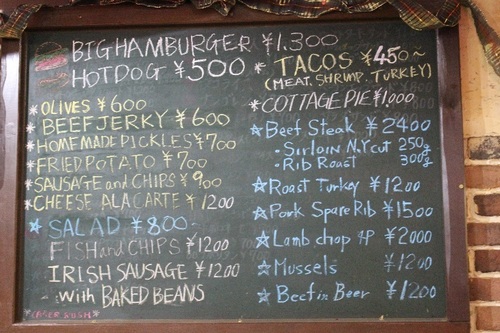 BIG HAMBURGER ¥1.300
HOTDOG ¥500
* TACOS ¥450~
(MEAT, SHRIMP, TURKEY)
* COTTAGE PIE ¥1,000
* OLIVES ¥600
* BEEF JERKY ¥600
* HOME MADE PICKLES ¥700
* FRIED POTATO ¥700
* SAUSAGE and CHIPS ¥900
* CHEESE A LA CARTE ¥1200
☆ SALAD ¥800~
FISH and CHIPS ¥1200
IRISH SAUSAGE ¥1200
- with BAKED BEANS
☆ Beef Steak ¥2400
• Sirloin N.Y cut 250g
• Rib Roast 300g
☆ Roast Turkey ¥1200
☆ Pork Spare Rib ¥1500
☆ Lamb chop 4P ¥2000
☆ Mussels ¥1200
☆ Beef in Beer ¥1200